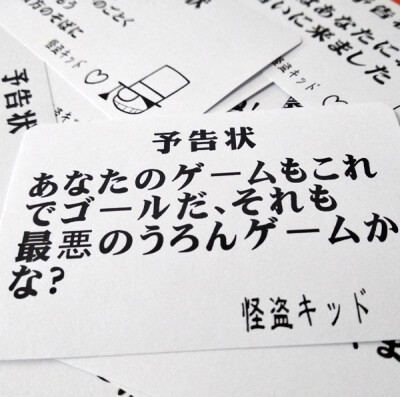 のごとく
もう
方のそばに
怪盗キッド
はあなたに
いに来ました
怪盗キッド
予告状
予告状
あなたのゲームもこれ
でゴールだ、それも
最悪のうろんゲームか
な?
怪盗キッド